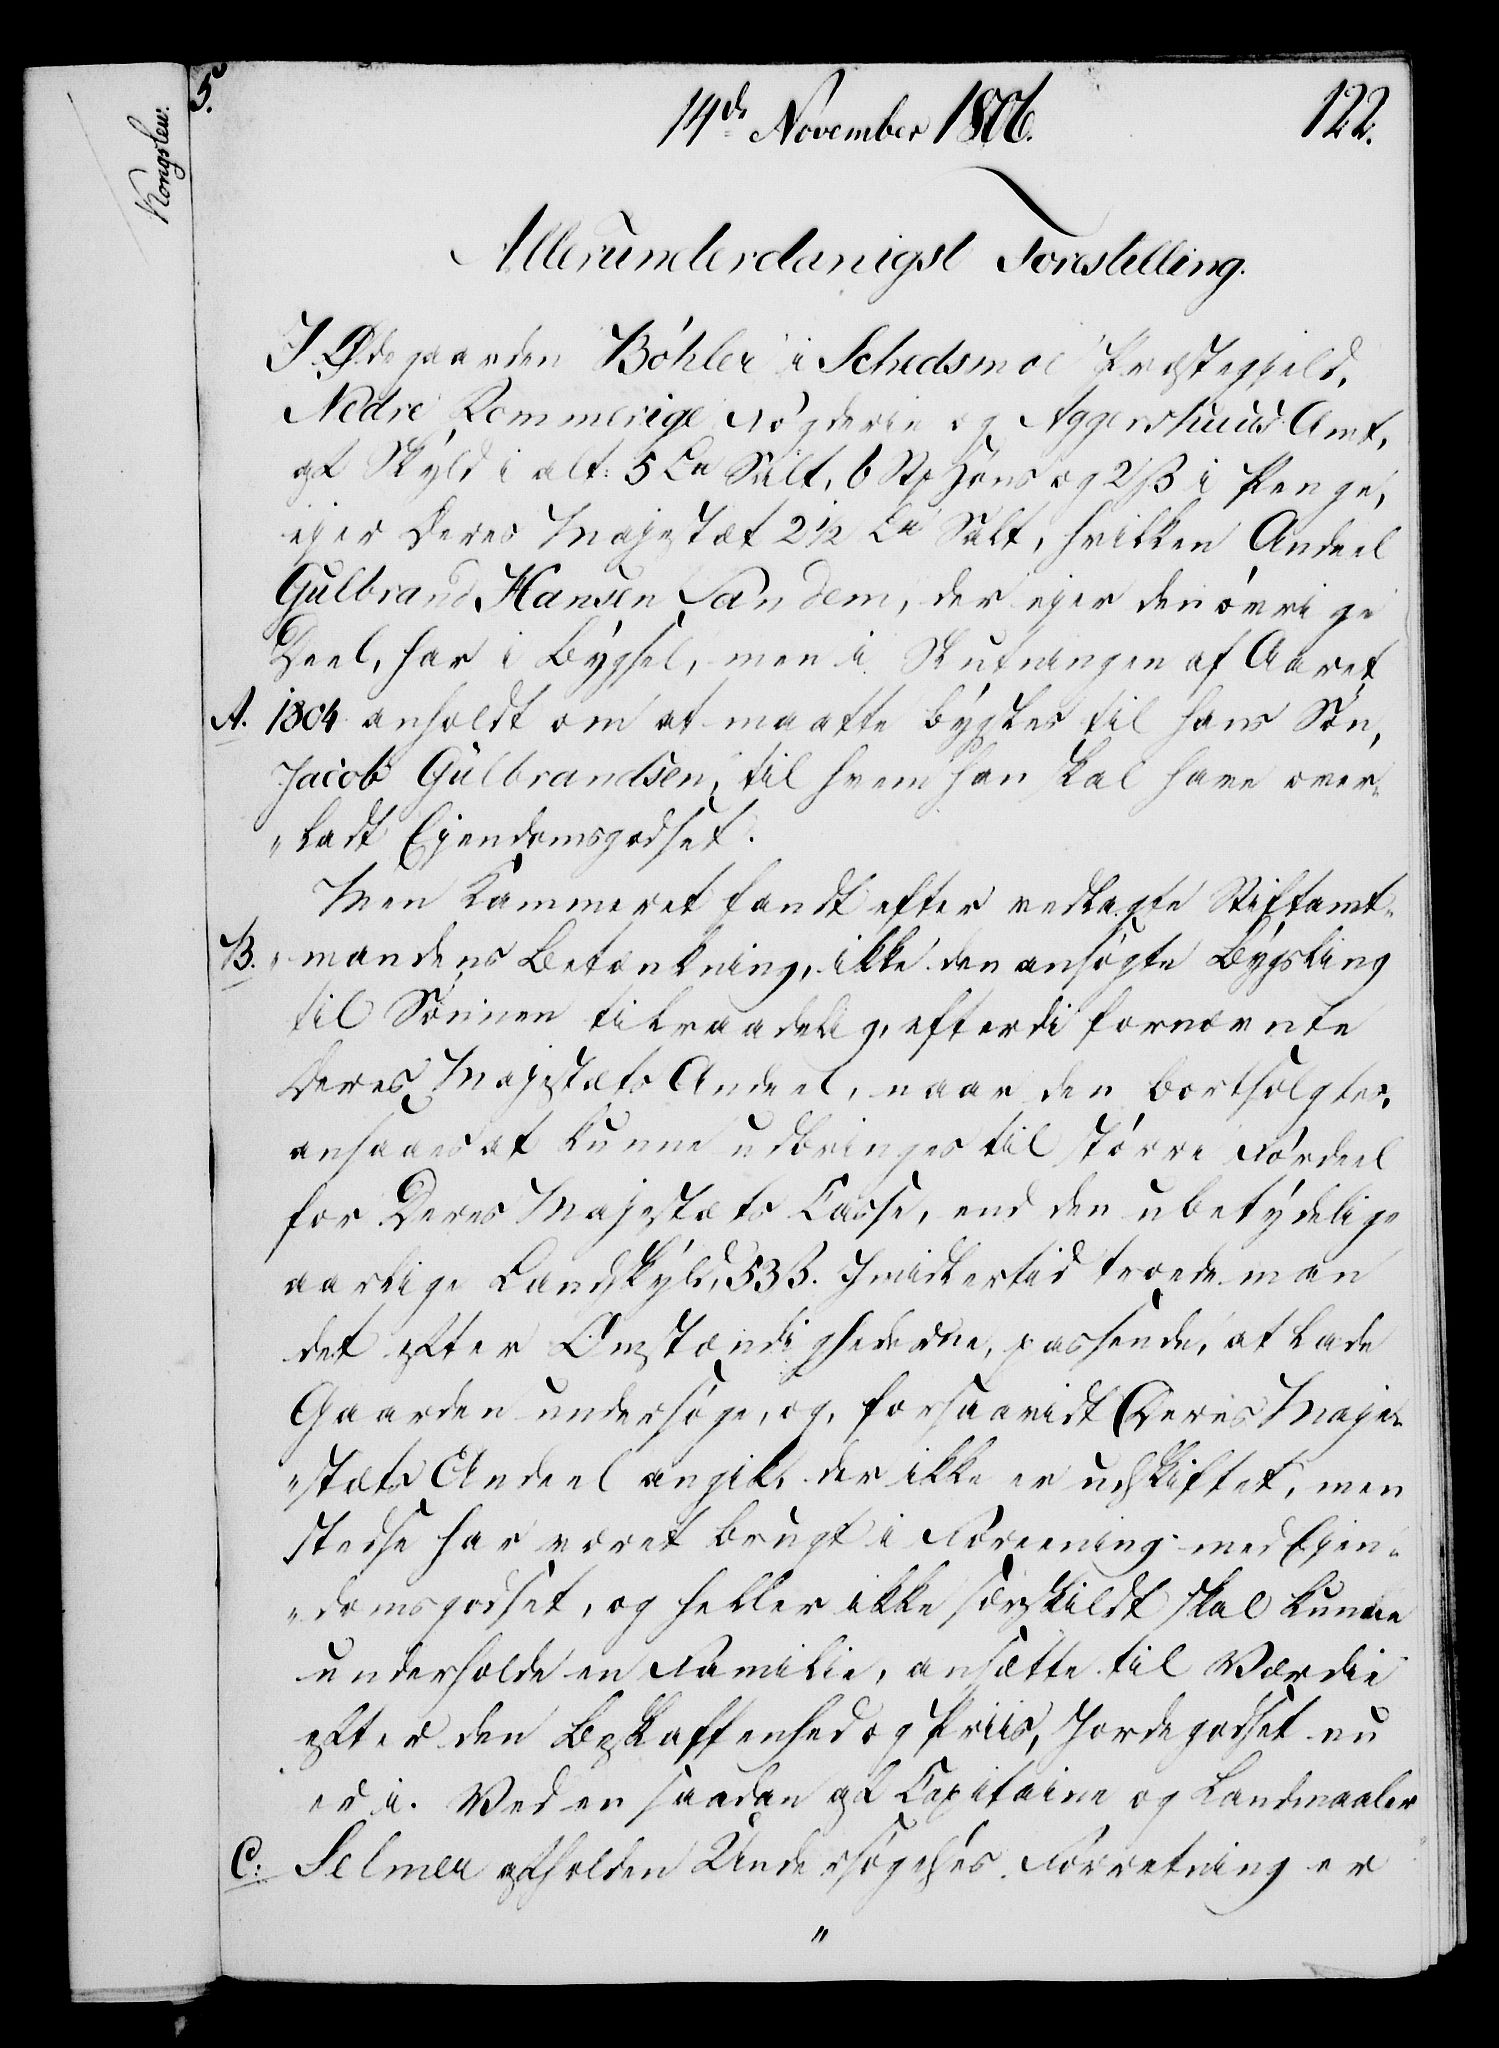 Kongslew.
5.
14de November 1806.
122.
Allerunderdanigst Forestelling.
I Ødegaarden Böhler i Schedsmoe Præstegjeld,
Nedre Rommerige Fögderie og Aggershuus Amt,
af Skyld i alt: 5 Salt, 6 Höns og 2 ß i Penge,
ejer Deres Majestæt 2 1/2 Salt, hvilken Andeel
Gulbrand Hansen Sandem, der ejer den övrige
Deel, har i Bÿgsel, men i Slutningen af Aaret
A. 1804 anholdt om at maatte bÿgsles til hans Sön,
Jacob Gulbrandsen, til hvem han skal have over-
„ladt Ejendomsgodset.
Men Kammeret fandt efter vedlagte Stiftamt-
B. „mandens Betænkning, ikke den ansögte Bÿgsling
til Sönnen tilraadelig, efterdi fornævnte
Deres Majestæts Andeel, naar den bortsolgtes,
ansaaes at kunne udbringes til större Fordeel
for Deres Majestæts Casse, end den ubetÿdelige
aarlige Landskÿld, 53 ß. Imidlertid troede man
det efter Omstændighederne, passende, at lade
Gaarden undersöge, og, forsaavidt Deres Maje-
„stæts Andeel angik, der ikke er udskiftet, men
stedse har været brugt i Foreening med Ejen-
„domsgodset, og heller ikke særskildt skal kunne
underholde en Familie, ansætte til Værdie
efter den Beskaffenhed og Priis, Jordegodset nu
er i. Ved en saadan af Capitaine og Landmaaler
C: Selmer afholden Undersögelses Forretning er
"